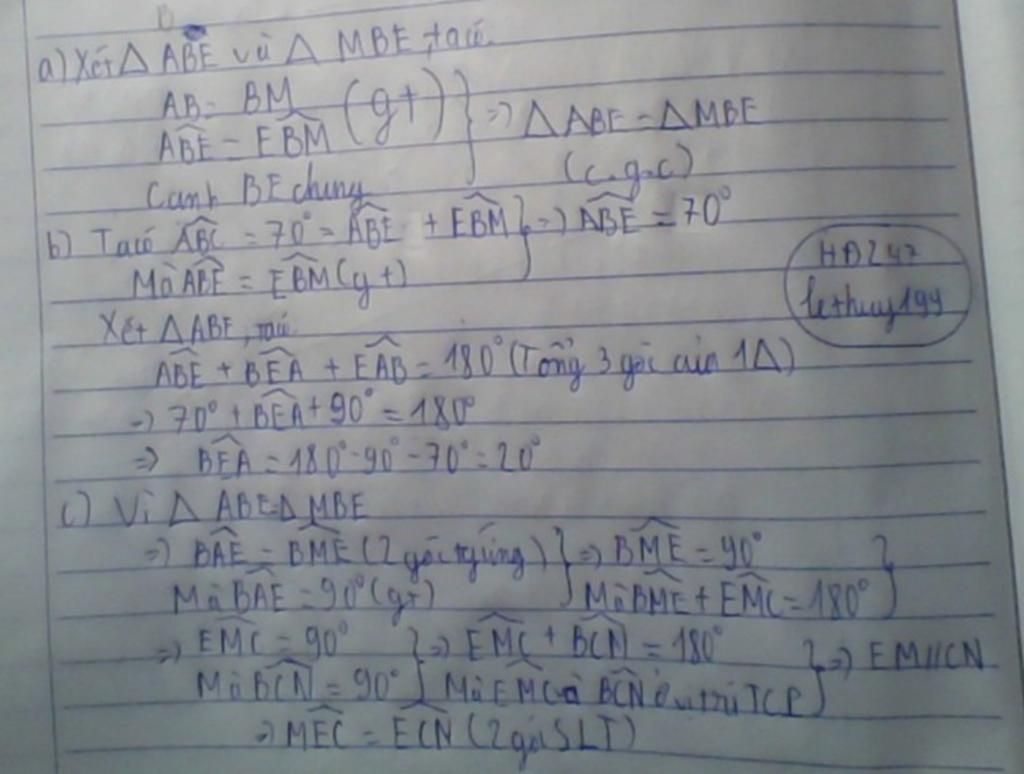 a) Xét △ ABE và △ MBE, ta có.
AB = BM
ABE = EBM (gt) } => △ ABE = △ MBE
Cạnh BE chung (c.g.c)
b) Ta có ABC = 70° = ABE + EBM } => ABE = 70°
Mà ABE = EBM (gt)
HĐ247
lethuy199
Xét △ ABE, ta có
ABE + BEA + EAB = 180° (Tổng 3 góc của 1△)
=> 70° + BEA + 90° = 180°
=> BEA = 180° - 90° - 70° = 20°
c) Vì △ ABE = △ MBE
=> BAE = BME (2 góc tg ứng) } => BME = 90° }
Mà BAE = 90° (gt) } Mà BME + EMC = 180° }
=> EMC = 90° } => EMC + BCN = 180° } => EM // CN
Mà BCN = 90° } Mà EMC và BCN ở vị trí TCP }
=> MEC = ECN (2 góc SLT)